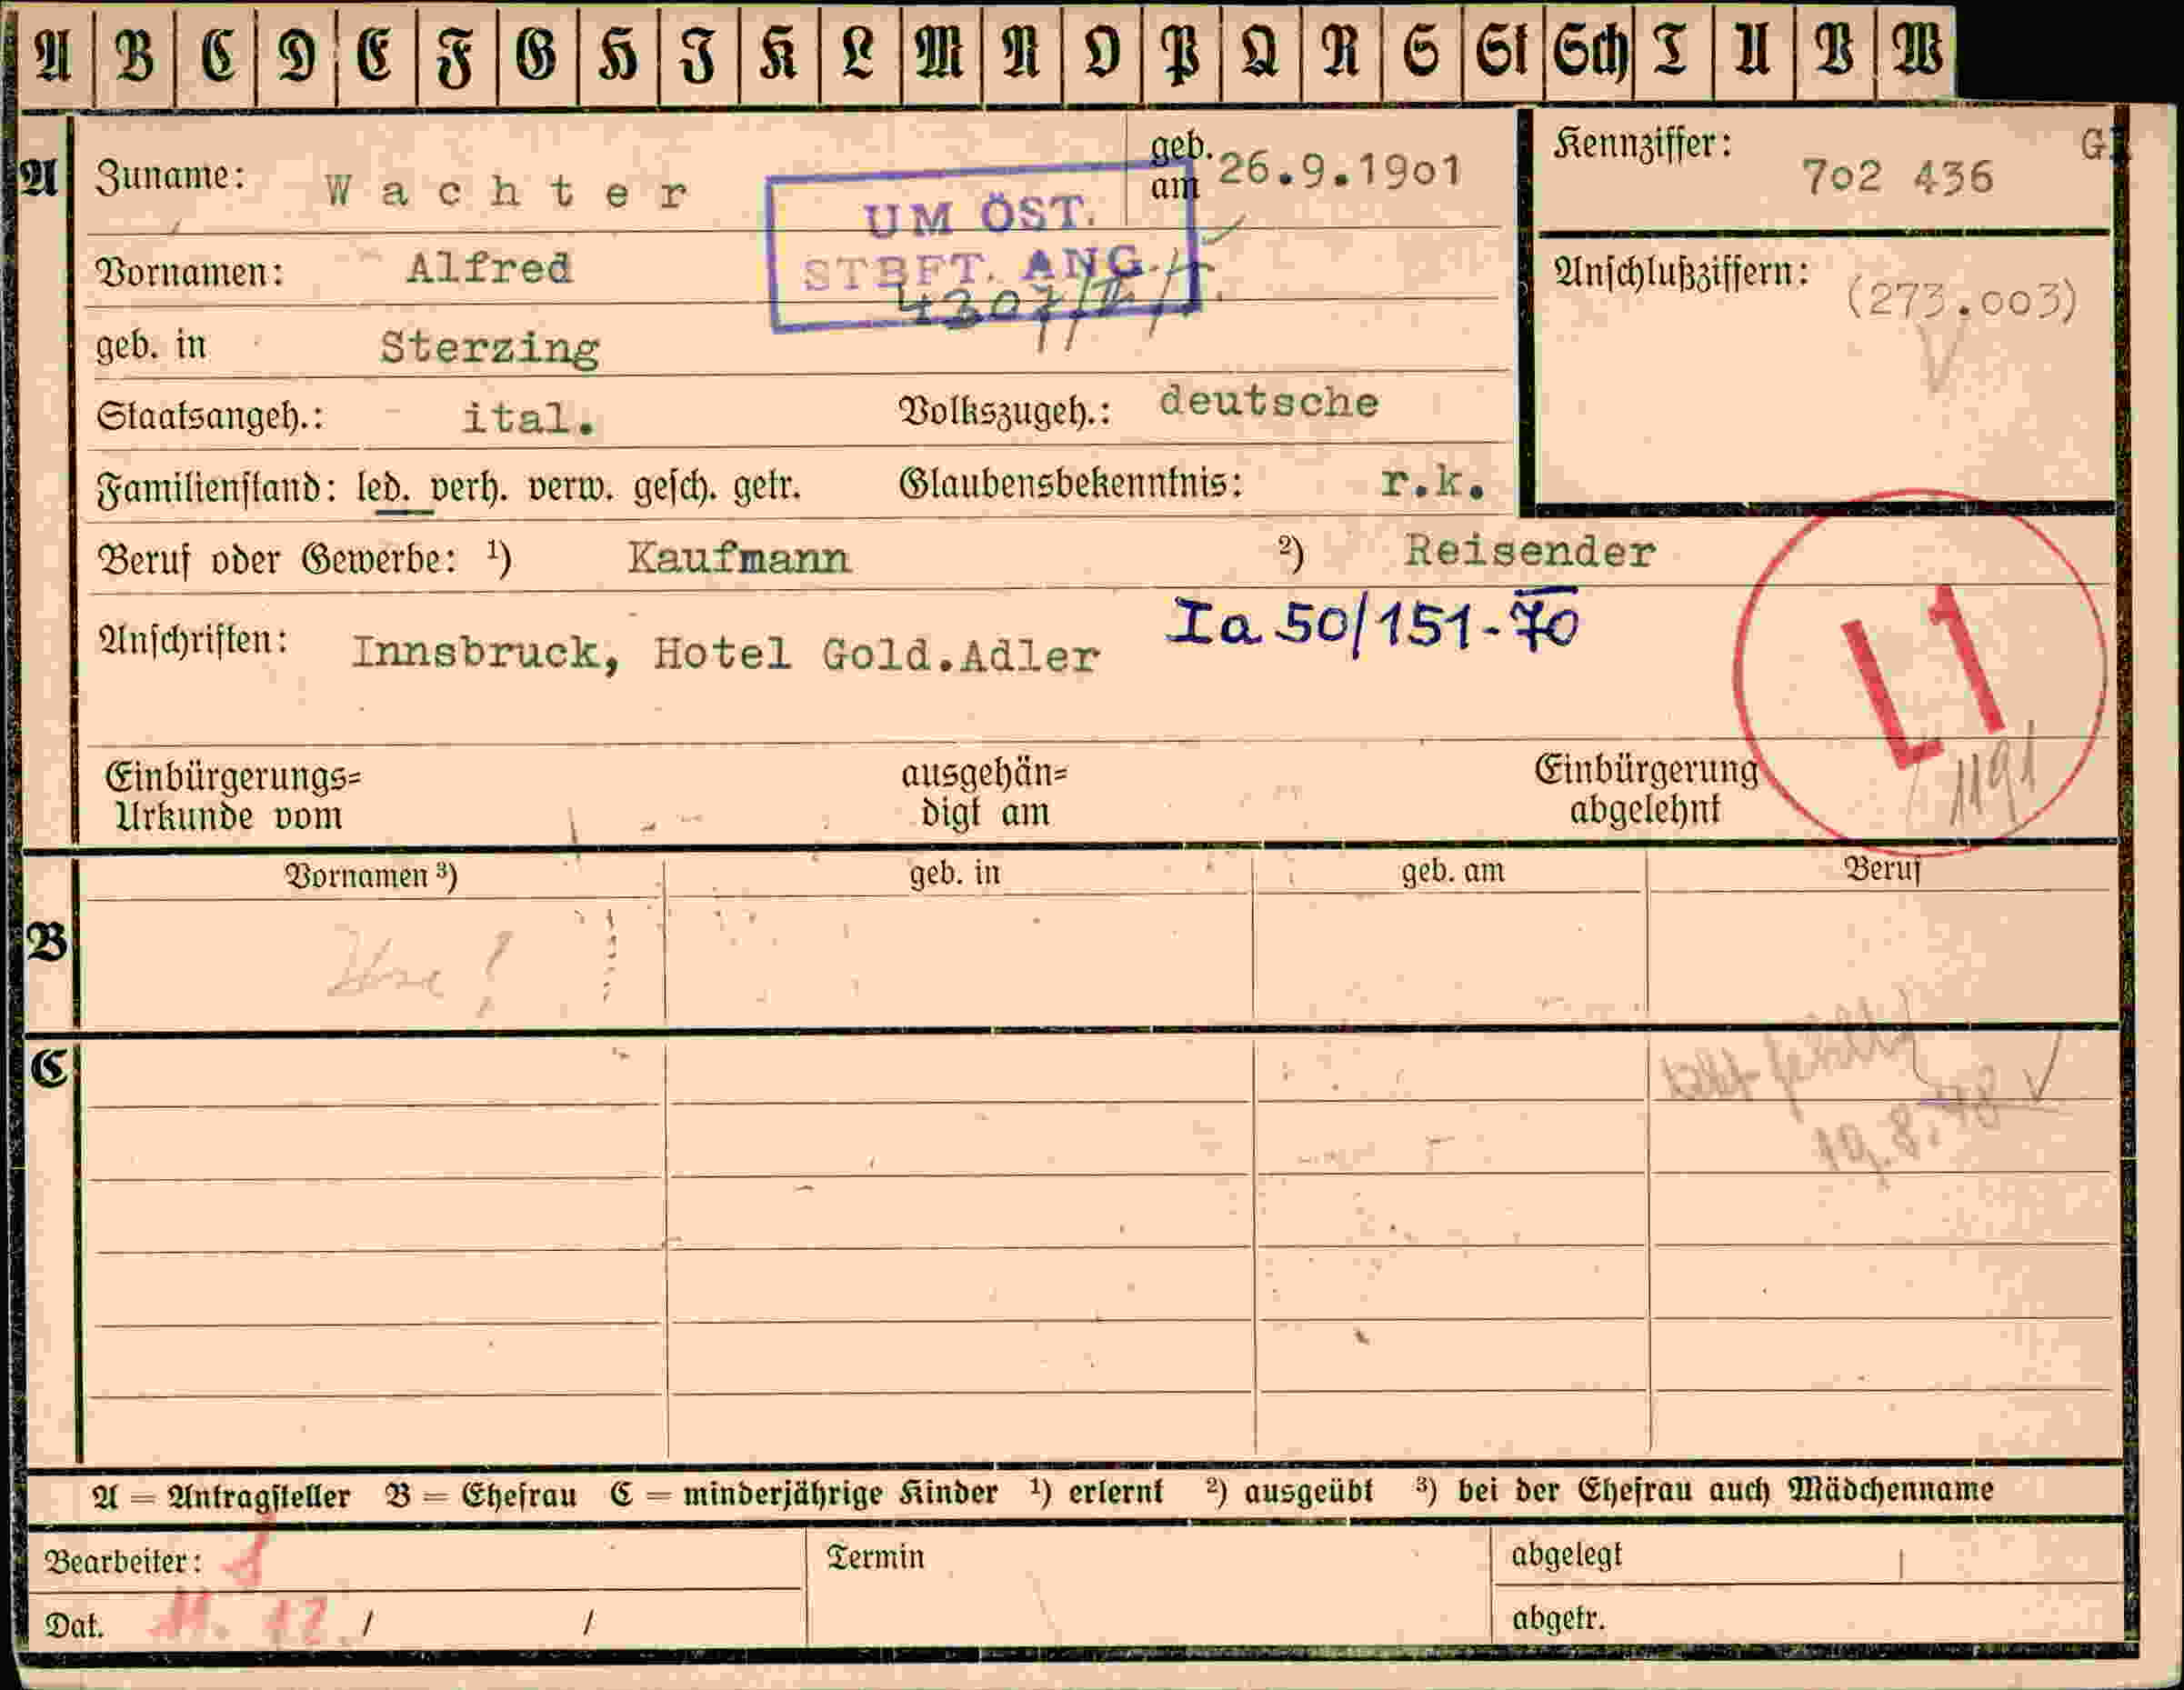 A B C D E F G H I K L M N O P Q R S St Sch T U V W
A
Zuname: Wachter
geb. am 26.9.1901
Kennziffer: 702 436
UM ÖST.
STBFT. ANG.
Vornamen: Alfred
Anschlußziffern: (273.003)
geb. in Sterzing
Staatsangeh.: ital. Volkszugeh.: deutsche
Familienstand: led. verh. verw. gesch. getr. Glaubensbekenntnis: r.k.
Beruf oder Gewerbe: ¹) Kaufmann ²) Reisender
Anschriften: Innsbruck, Hotel Gold.Adler
Ia 50/151-70
L1
1191
Einbürgerungs=
Urkunde vom
ausgehän=
digt am
Einbürgerung
abgelehnt
B
Vornamen ³) geb. in geb. am Beruf
C
19.8.48
A = Antragsteller B = Ehefrau C = minderjährige Kinder ¹) erlernt ²) ausgeübt ³) bei der Ehefrau auch Mädchenname
Bearbeiter:
Termin
abgelegt
Dat. 11. 12. / /
abgetr.